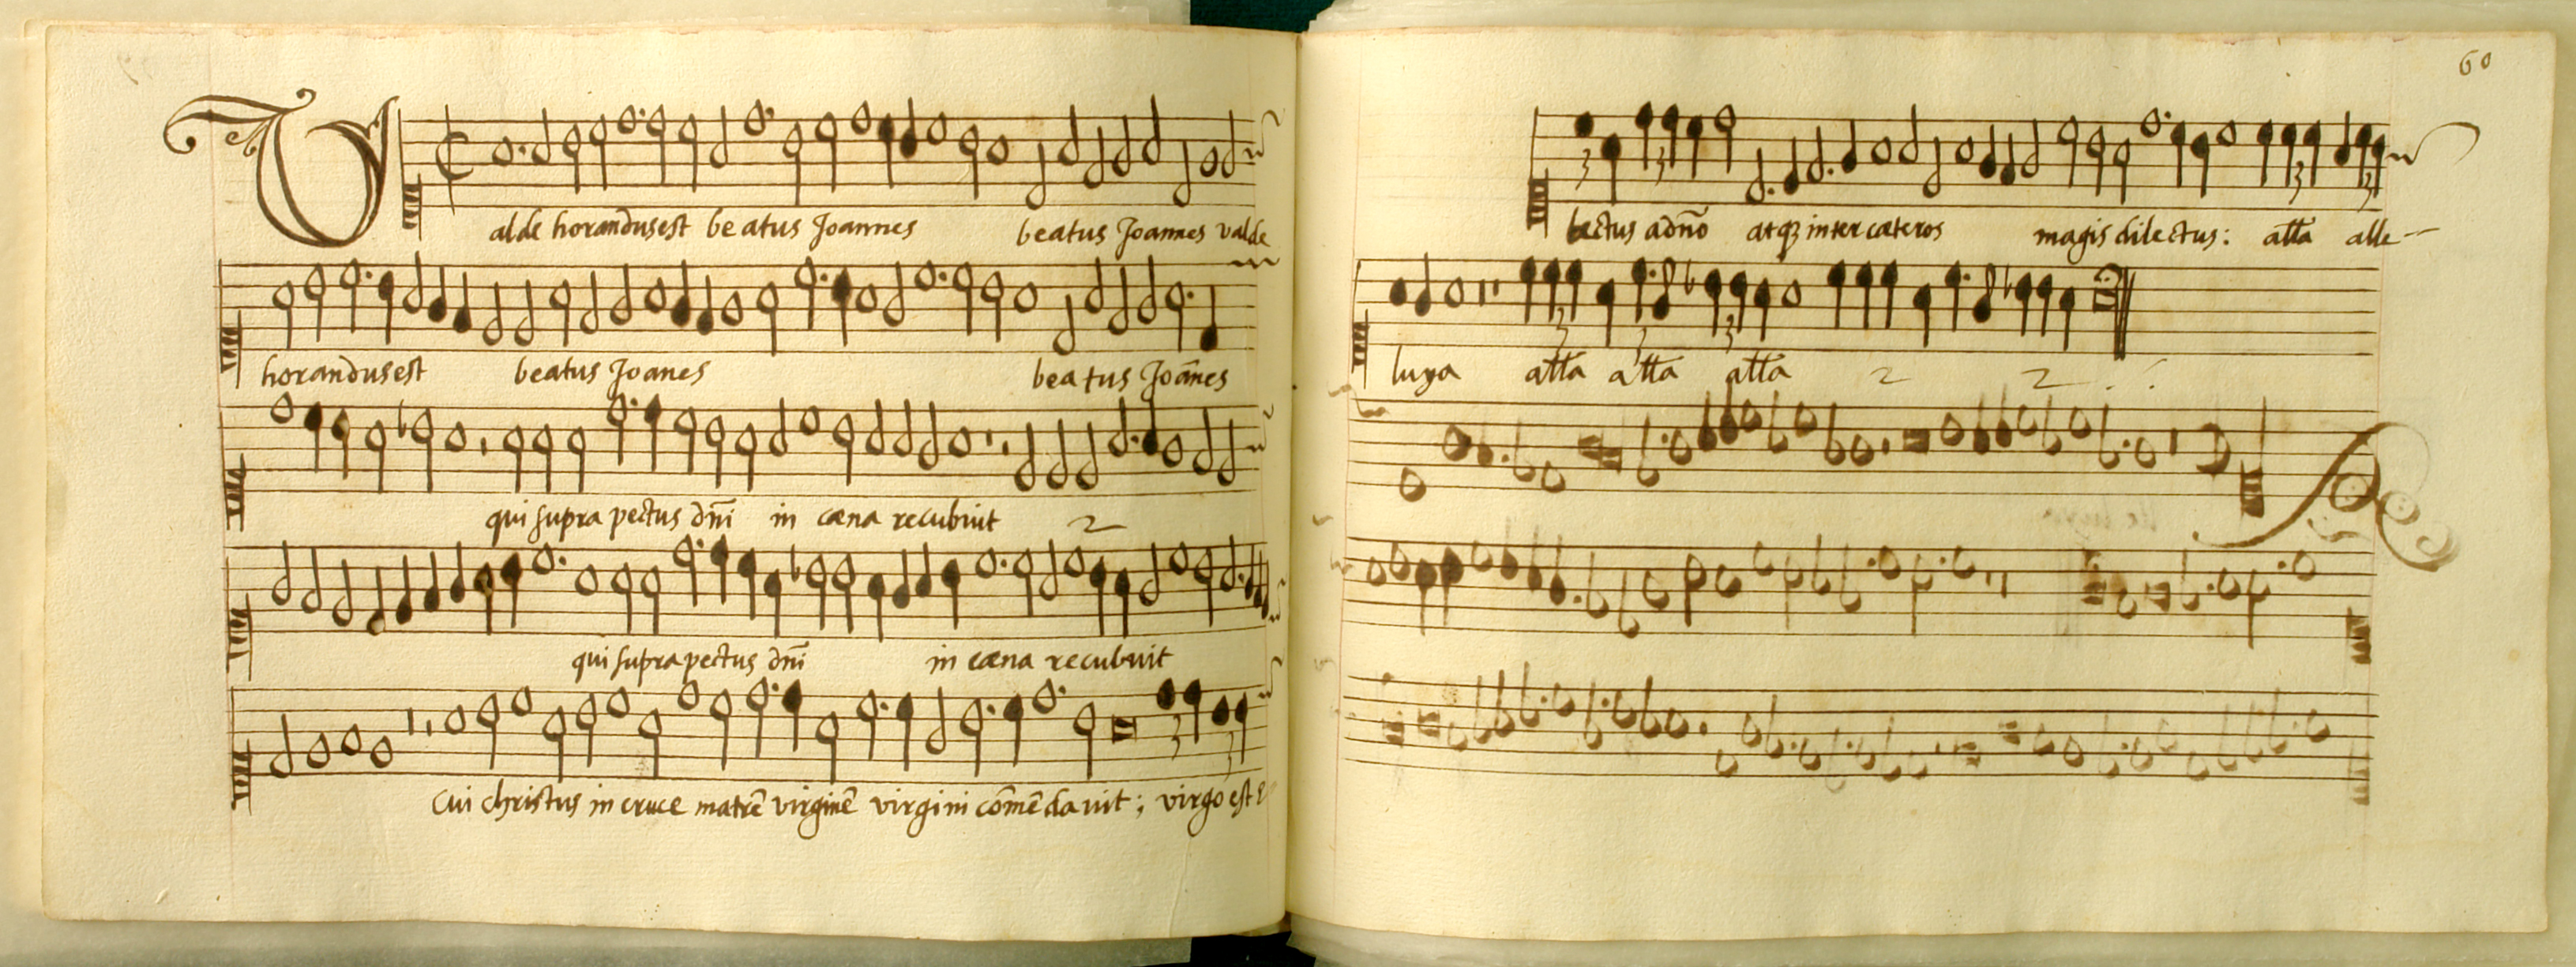 Valde horandus est beatus Joannes beatus Joannes valde
horandus est beatus Joanes beatus Joānes
qui supra pectus dn̄i in cæna recubuit 2
qui supra pectus dn̄i in cæna recubuit
Cui christus in cruce matrē virginē virgini cōmēdavit; virgo est
60
lectus a dn̄o atq3 inter cæteros magis dilectus: alla alle-
luya alla alla alla 2 2